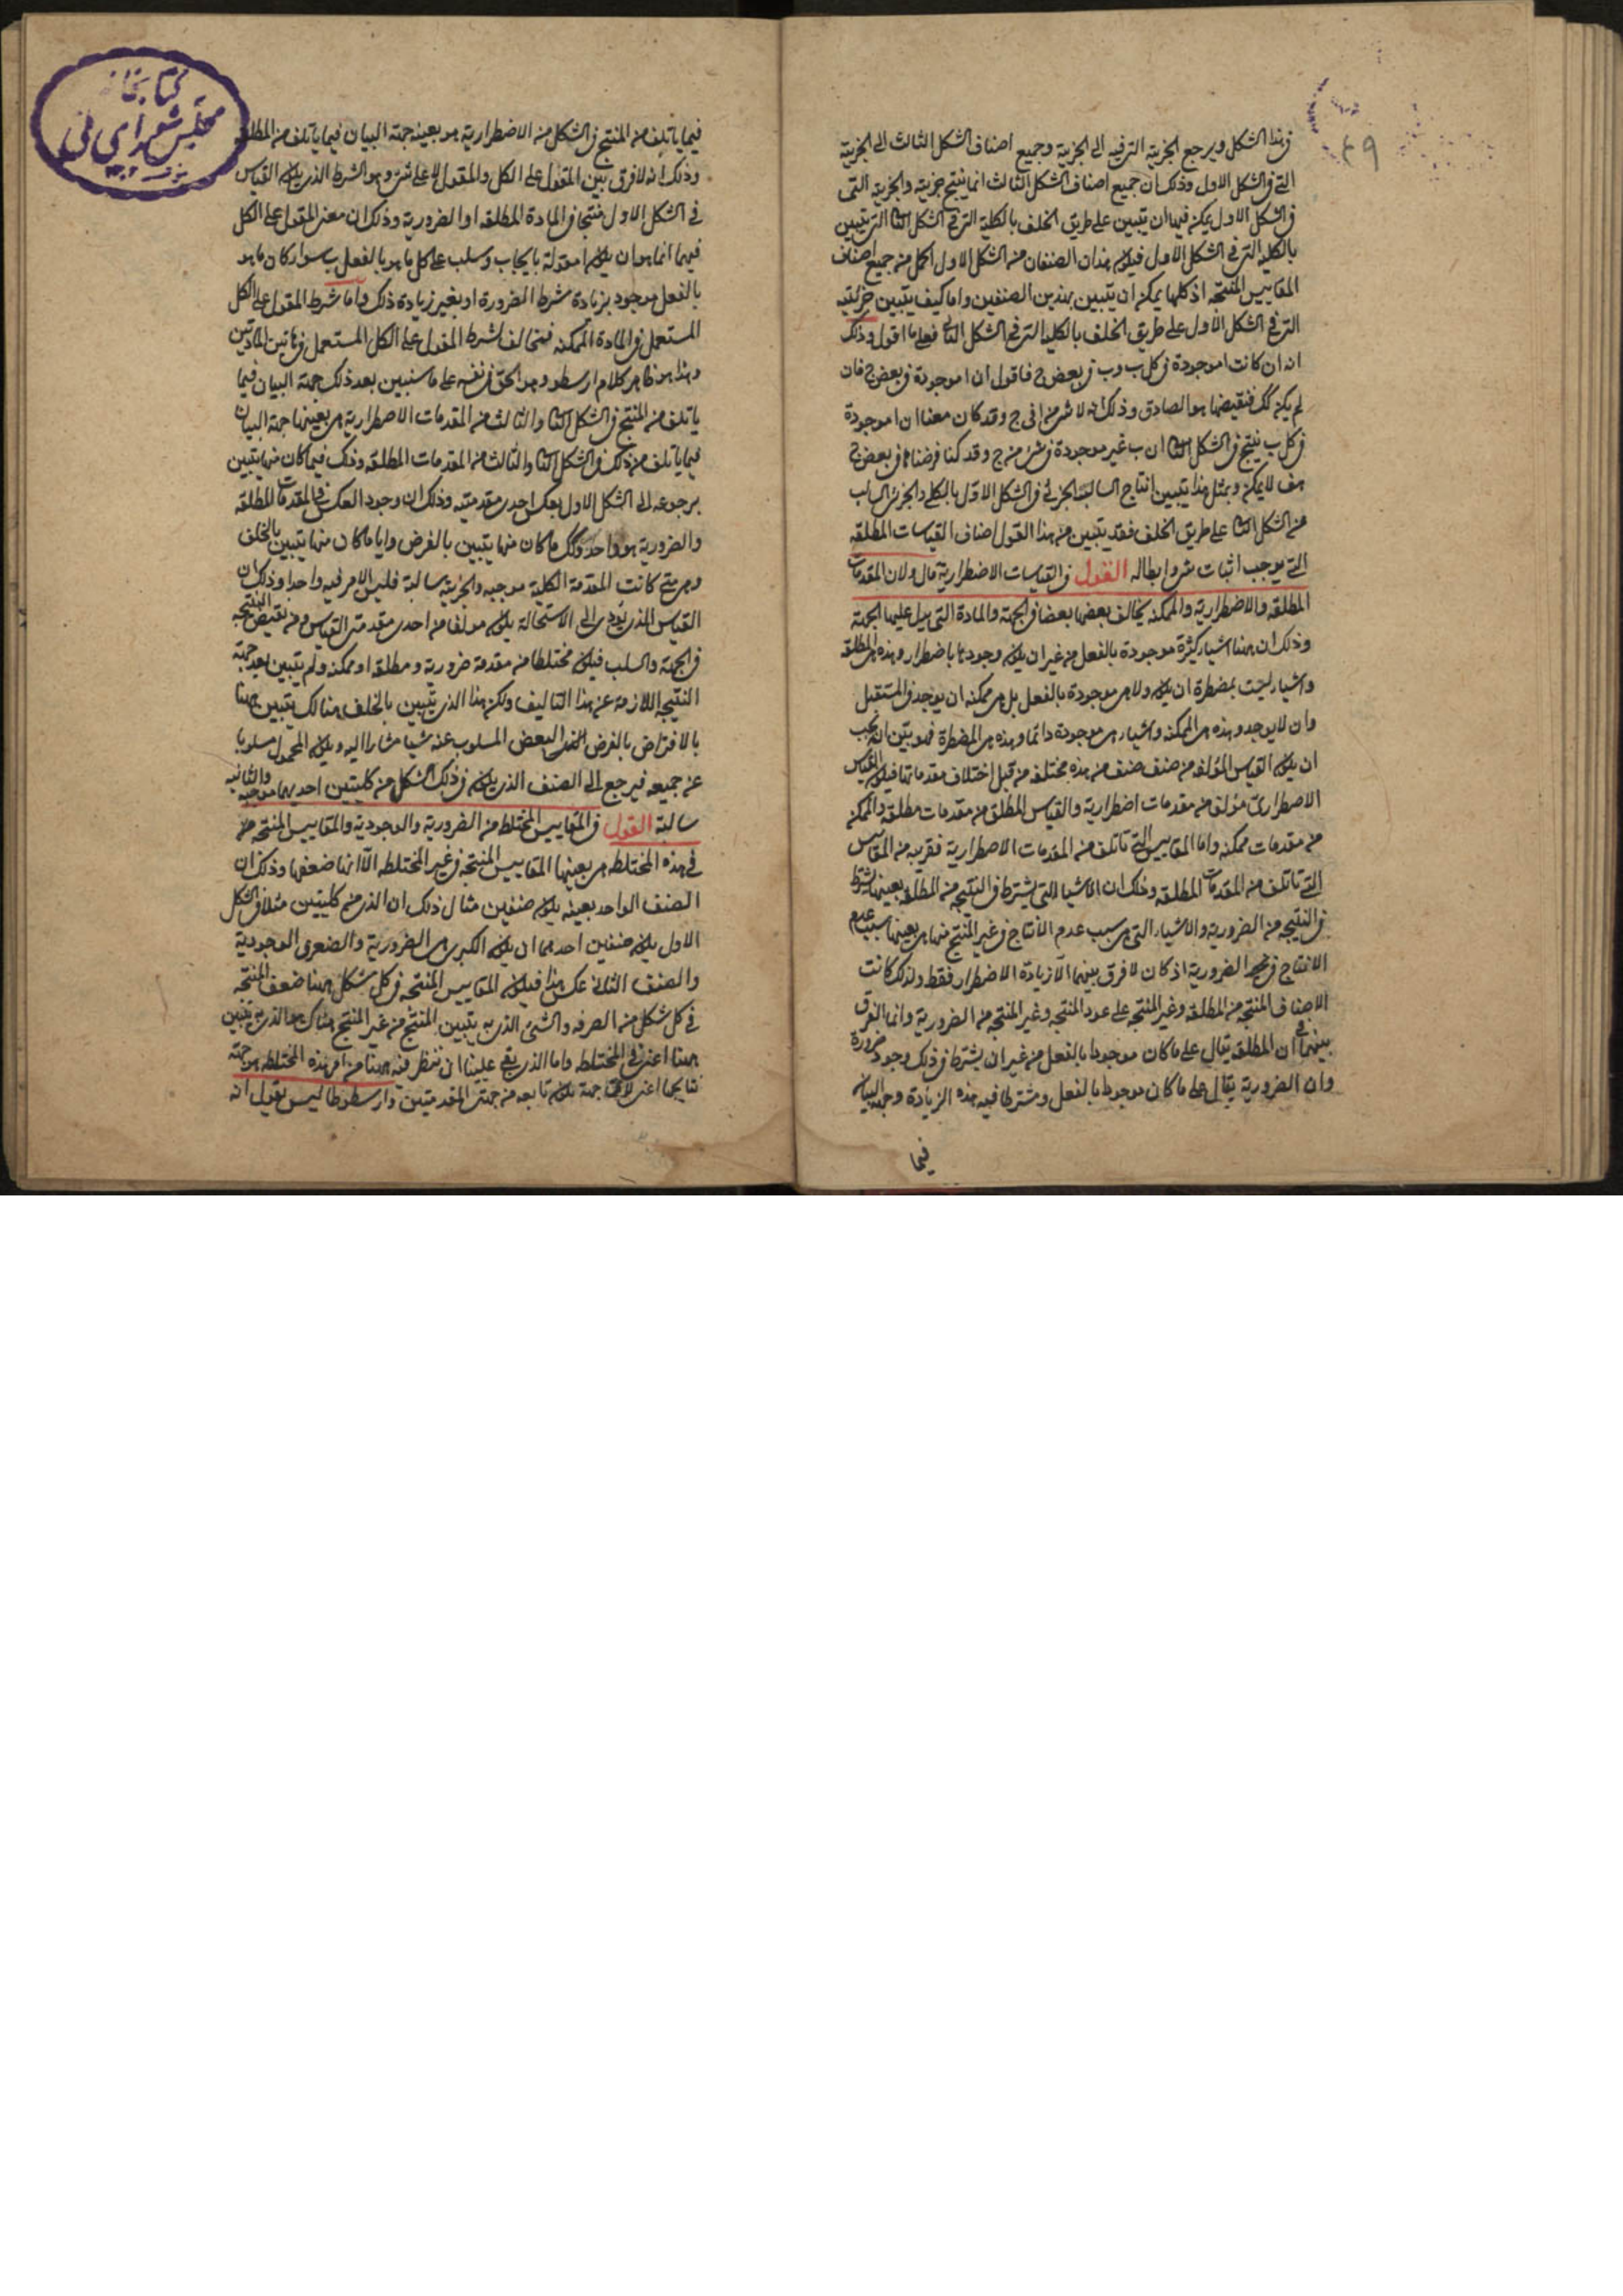 في هذا الشكل ويرجع الجزئية التي فيه الى الجزئية وجميع اصناف الشكل الثالث الى الجزئية
التي في الشكل الاول وذلك ان جميع اصناف الشكل الثالث انما ينتج جزئية والجزئية التى
في الشكل الاول يمكن فيها ان تتبين على طريق الخلف بالكلية التي في الشكل الثا التي يتبين
بالكلية التي في الشكل الاول فيكون هذان الصنفان من الشكل الاول اكمل من جميع اصناف
المقاييس المنتجه اذ كلها يمكن ان يتبين بهذين الصنفين واما كيف يتبين جزئيته
التي في الشكل الاول على طريق الخلف بالكلية التي في الشكل الثا فعلى ما اقول وذلك
انه ان كانت ا موجودة في كل ب وب في بعض ج فاقول ان ا موجودة في بعض ج فان
لم يكن كك فنقيضها هو الصادق وذلك انه لا شئ من ا في ج وقد كان معنا ان ا موجودة
في كل ب ينتج في الشكل الثا ان ب غير موجودة في شئ من ج وقد كنا فرضناها في بعض ج
هف لا يمكن وبمثل هذا يتبين انتاج السالبه الجزئي في الشكل الاول بالكلي والجزئي السالب
من الشكل الثا على طريق الخلف فقد يتبين من هذا القول اصناف القياسات المطلقه
التي يوجب اثبات شئ وابطاله القول في القياسات الاضطرارية قال ولان المقدمات
المطلقه والاضطرارية والممكنه يخالف بعضها بعضا في الجهة والمادة التى يدل عليها الجهة
وذلك ان ههنا اشياء كثيرة موجودة بالفعل من غير ان يكون وجودها باضطرار وهذه هي المطلقه
واشياء ليست بمضطرة ان يكون ولا هي موجودة بالفعل بل هي ممكنه ان يوجد في المستقبل
وان لا يوجد وهذه هي الممكنه واشياء هي موجودة دائما وهذه هي المضطرة فهو بين انه يجب
ان يكون القياس المؤلف من صنف صنف من هذه مختلفه من قبل اختلاف مقدماتها فيكون القياس
الاضطراري مؤلف من مقدمات اضطرارية والقياس المطلق من مقدمات مطلقه والممكن
من مقدمات ممكنه واما المقاييس التي تاتلف من المقدمات الاضطرارية فقريبه من المقاييس
التي تاتلف من المقدمات المطلقه وذلك ان الاشيا التي يشترط في النتيجه من المطلقه بعينها يشترط
في النتيجه من الضرورية والاشياء التى هي سبب عدم الانتاج في غير المنتج منها هي بعينها سبب عدم
الانتاج في الضرورية اذ كان لا فرق بينهما الا زيادة الاضطرار فقط ولذلك كانت
الاصناف المنتجه من المطلقه وغير المنتجه على عدد المنتجه وغير المنتجه من الضرورية وانما الفرق
بينهما في ان المطلقه يقال على ما كان موجودا بالفعل من غير ان يشترط في ذلك وجود ضرورة
وان الضرورية يقال على ما كان موجودا بالفعل ومشترطا فيه هذه الزيادة وجهة البيان
فيما
فيما ياتلف من المنتج في الشكل من الاضطرارية هو بعينه جهة البيان فيما ياتلف من المطلقه
وذلك انه لا فرق بين المقول على الكل والمقول لا على شئ وهو الشرط الذي يكون القياس
في الشكل الاول منتجا في المادة المطلقه او الضرورية وذلك ان معنى المقول على الكل
فيهما انما هو ان يكون ا مقولة بايجاب وسلب على كل ما هو ب بالفعل سواء كان ما هو
بالفعل موجود بزيادة شرط الضرورة او بغير زيادة ذلك واما شرط المقول على الكل
المستعمل في المادة الممكنه فمخالف لشرط المقول على الكل المستعمل في هاتين المادتين
وهذا هو ظاهر كلام ارسطو وهو الحق في نفسه على ما سنبين بعد ذلك جهة البيان فيما
ياتلف من المنتج في الشكل الثا والثالث من المقدمات الاضطرارية هي بعينها جهة البيان
فيما ياتلف من ذلك في الشكل الثا والثالث من المقدمات المطلقه وذلك فيما كان منها يتبين
برجوعه الى الشكل الاول بعكس احدى مقدمتيه وذلك ان وجود العكس في المقدمات المطلقه
والضرورية هو واحد وكك ما كان منها يتبين بالفرض واما ما كان منها يتبين بالخلف
وهي متى كانت المقدمة الكلية موجبه والجزئية سالبة فليس الامر فيه واحدا وذلك ان
القياس الذي يؤدى الى الاستحالة يكون مولفا من احدى مقدمتي القياس ومن نقيض النتيجه
في الجهة والسلب فيكون مختلطا من مقدمة ضرورية ومطلقه او ممكنه ولم يتبين بعد جهة
النتيجه اللازمة عن هذا التاليف ولكن هذا الذي يتبين بالخلف هنالك يتبين ههنا
بالافتراض بالفرض البعض المسلوب عنه شيا مشارا اليه ويكون المحمول مسلوبا
عن جميعه فيرجع الى الصنف الذي يكون في ذلك الشكل من كليتين احديهما موجبه والثانيه
سالبة القول في المقاييس المختلط من الضرورية والوجودية والمقاييس المنتجه من
في هذه المختلطه هي بعينها المقاييس المنتجه في غير المختلطه الا انها ضعفها وذلك ان
الصنف الواحد بعينه يكون صنفين مثال ذلك ان الذي من كليتين مثلا في الشكل
الاول يكون صنفين احدهما ان يكون الكبرى هي الضرورية والصغرى الوجودية
والصنف الثانى عكس هذا فيكون المقاييس المنتجه في كل شكل ههنا ضعف المنتجه
في كل شكل من الصرفه والشئ الذي به يتبين المنتج من غير المنتج هناك هو الذي به يتبين
ههنا اعني في المختلط واما الذي بقي علينا ان ننظر فيه ههنا من امر هذه المختلطه هو جهة
نتايجها اعني لاى جهة يكون تابعه من جهتي المقدمتين وارسطوطاليس يقول انه
كتابخانه
مجلس شوراى ملى